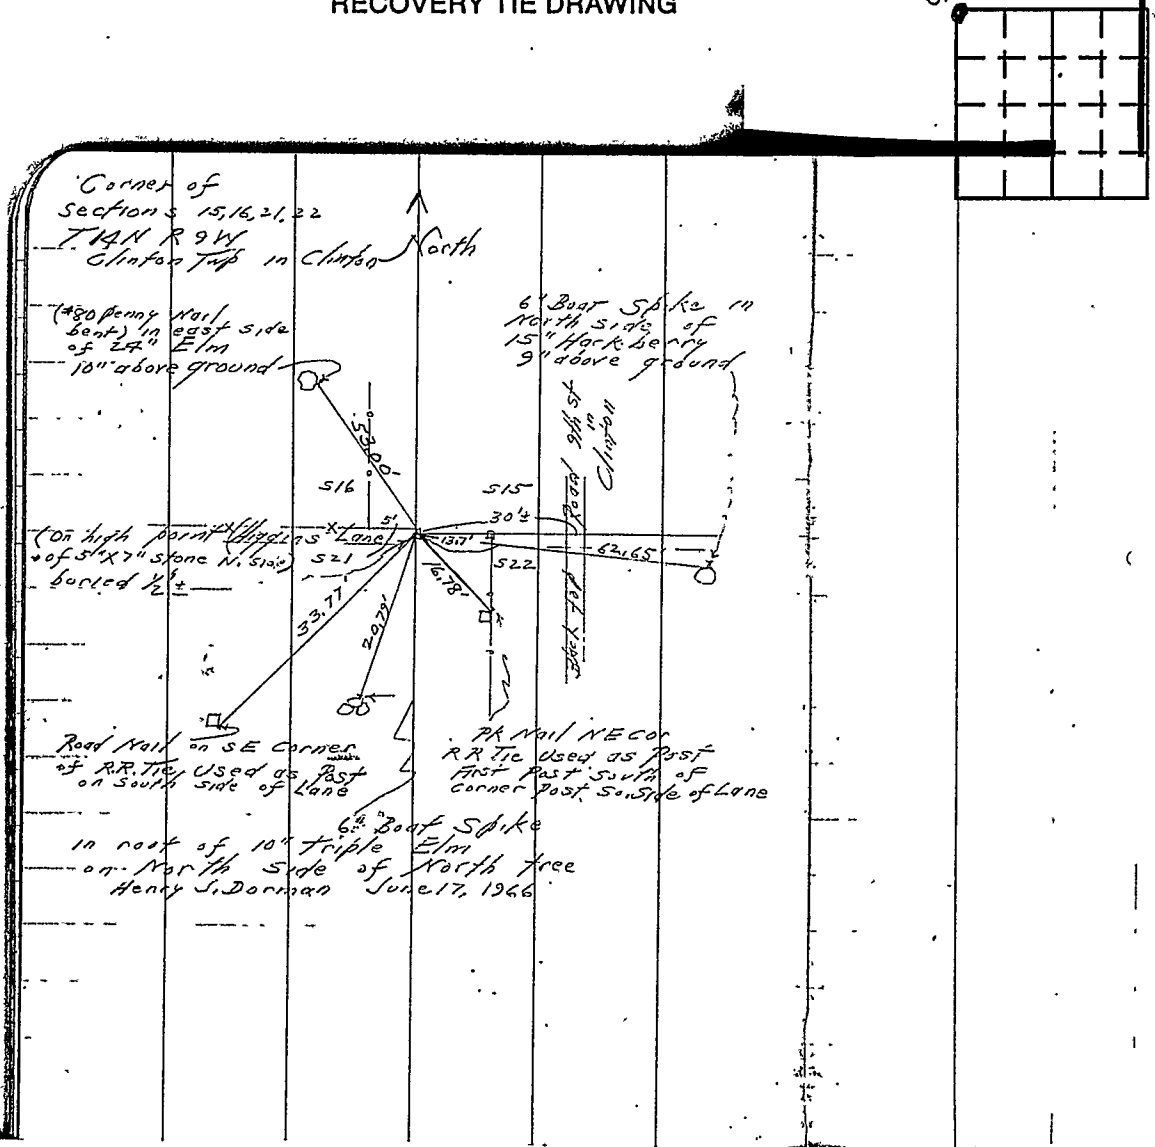 RECOVERY TIE DRAWING
Corner of
Sections 15,16,21,22
T14N R9W
Clinton Twp in Clinton
North
(*80 penny Nail
bent) in east side
of 24" Elm
10" above ground
6" Boat Spike in
North side of
15" Hackberry
9" above ground
53.00'
Road 9th St
in
Clinton
S16
S15
30'±
5'
(on high point
Higgins Lane
of 5"X7" stone N. side)
buried 1/2'±
S21
13.7'
S22
62.65'
16.78'
33.77'
20.79'
Road Nail on SE Corner
of R.R. Tie Used as Post
on South side of Lane
PK Nail NE Cor
RR Tie Used as Post
First Post South of
Corner Post So. Side of Lane
6" Boat Spike
in root of 10" triple Elm
on North side of North tree
Henry S. Dorman June 17, 1966